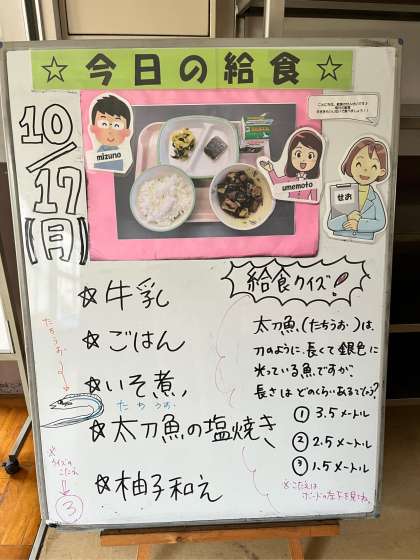 ☆今日の給食☆
10/17(月)
mizuno
umemoto
せお
☆牛乳
☆ごはん
☆いそ煮
たちうお
☆太刀魚の塩焼き
☆柚子和え
たちうお
※クイズのこたえ
③
給食クイズ!
太刀魚(たちうお)は、
刀のように長くて銀色に
光っている魚ですが、
長さはどのくらいあるでしょう?
① 3.5メートル
② 2.5メートル
③ 1.5メートル
※こたえは
ボードの左下を見てね。